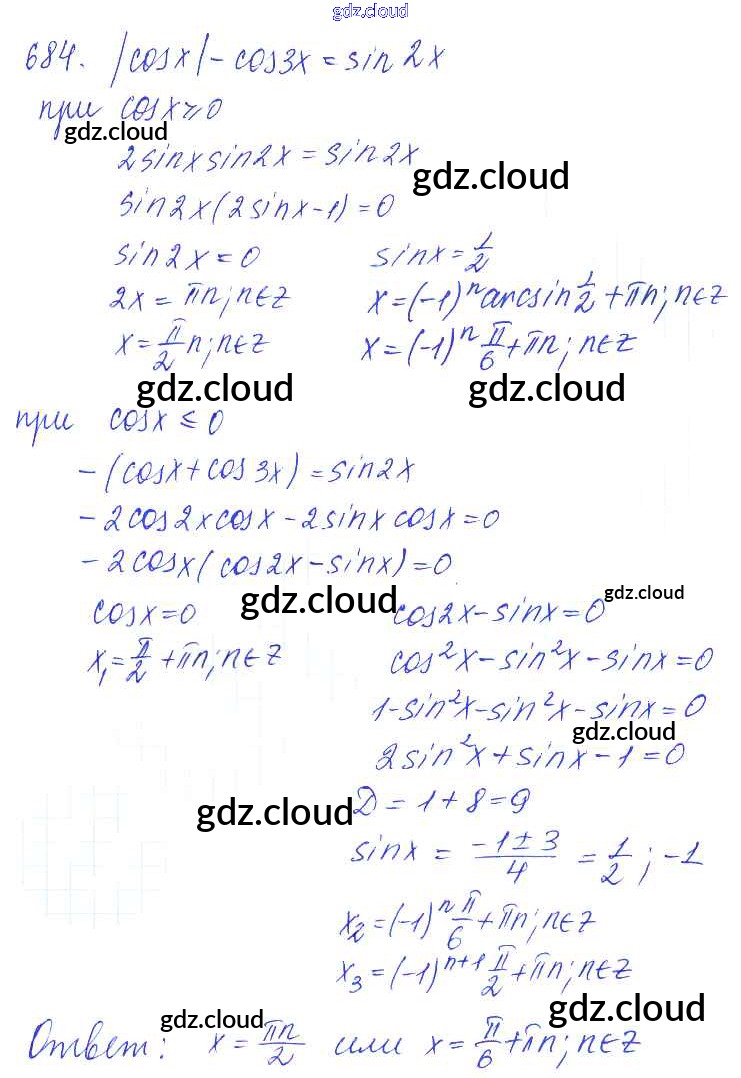 gdz.cloud
684. |cosx|-cos3x=sin2x
при cosx≥0
gdz.cloud
2sinxsin2x=sin2x
gdz.cloud
sin2x(2sinx-1)=0
sin2x=0 sinx=1/2
2x=πn; n∈Z x=(-1)ⁿarcsin1/2+πn; n∈Z
x=π/2n; n∈Z x=(-1)ⁿπ/6+πn; n∈Z
gdz.cloud gdz.cloud
при cosx≤0
-(cosx+cos3x)=sin2x
-2cos2xcosx-2sinxcosx=0
-2cosx(cos2x-sinx)=0
gdz.cloud gdz.cloud
cosx=0 cos2x-sinx=0
x₁=π/2+πn; n∈Z cos²x-sin²x-sinx=0
1-sin²x-sin²x-sinx=0
gdz.cloud
2sin²x+sinx-1=0
gdz.cloud
Д=1+8=9
sinx=(-1±3)/4=1/2; -1
x₂=(-1)ⁿπ/6+πn; n∈Z
x₃=(-1)ⁿ⁺¹π/2+πn; n∈Z
gdz.cloud gdz.cloud
Ответ: x=πn/2 или x=π/6+πn; n∈Z